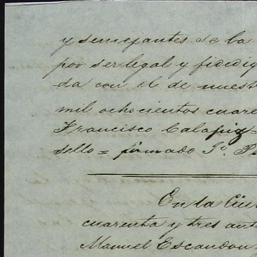 y semejantes se ha
por ser legal y fidedig
da con el de nuest
mil ochocientos cuare
Francisco Calapiz
sello = firmado J.
En la Ciu
cuarenta y tres ant
Manuel Escandon